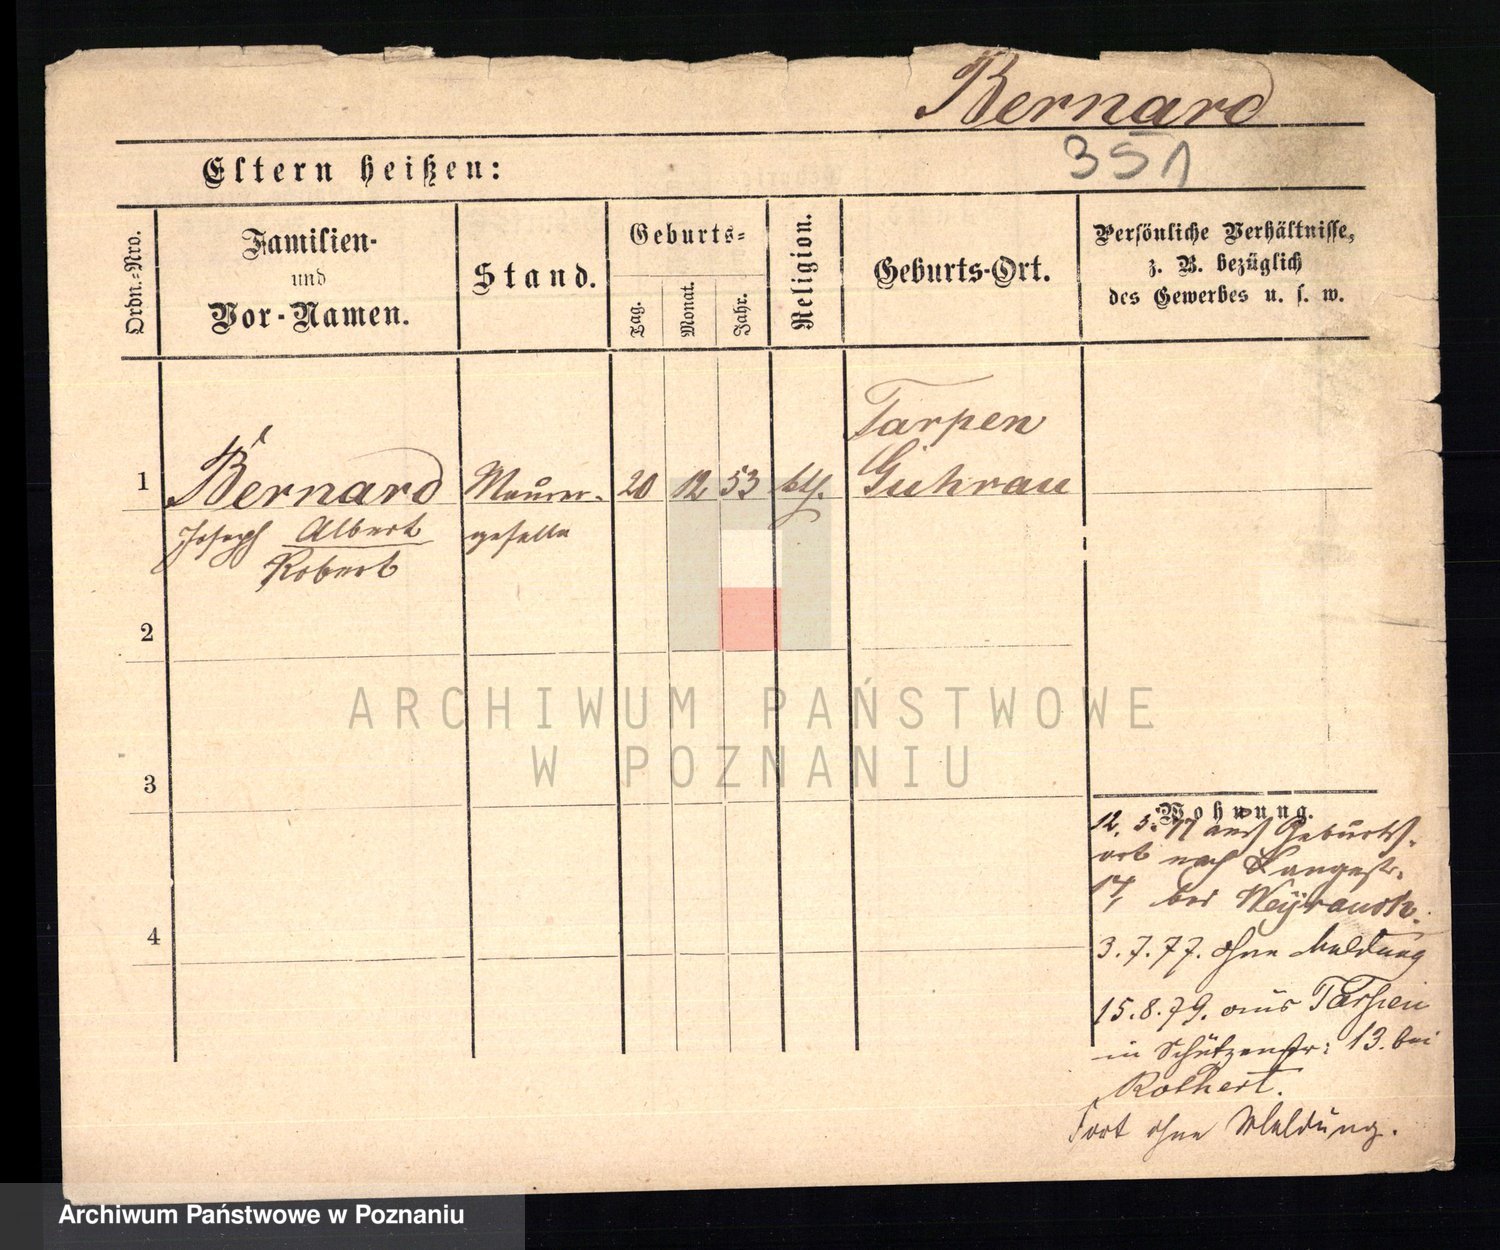 Bernard
351
Eltern heißen:
Ordn.-Nro.
Familien-
und
Vor-Namen.
Stand.
Geburts-
Tag.
Monat.
Jahr.
Religion.
Geburts-Ort.
Persönliche Verhältnisse,
z. B. bezüglich
des Gewerbes u. s. w.
1
Bernard
Joseph Albert
Robert
Maurer-
geselle
20 12 53 kth.
Tarpen
Guhrau
2
3
4
Wohnung.
12. 5. 77 aus Geburts-
ort nach Langestr.
bei
3. 7. 77. ohne Meldung
15. 8. 79. aus Tarpen
in Schützenstr: 13. bei
Rothert.
Fort ohne Meldung.
ARCHIWUM PAŃSTWOWE
W POZNANIU
Archiwum Państwowe w Poznaniu